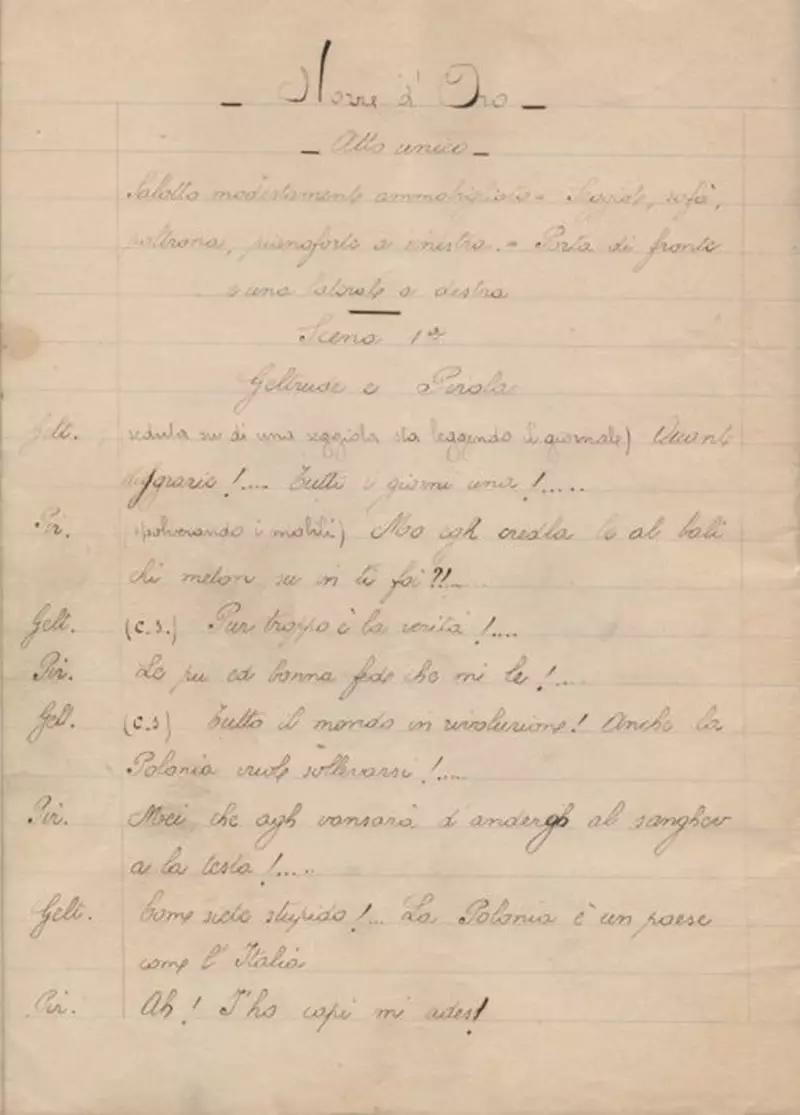 - Nozze d'Oro -
- Atto unico -
Salotto modestamente ammobigliato = Seggiole, sofà,
poltrona, pianoforte a sinistra. = Porta di fronte
e una laterale a destra
Scena 1ª
Geltrude e Pirola
Gelt. seduta su di una seggiola sta leggendo il giornale) Quante
disgrazie!.... Tutti i giorni una!.....
Pir. (spolverando i mobili) Mo egh credla le al bali
chi meton su in ti foi?!...
Gelt. (c.s.) Pur troppo è la verità!....
Pir. La pu ed bonna fede che mi le!....
Gelt. (c.s) Tutto il mondo in rivoluzione! Anche la
Polonia vuole sollevarsi!....
Pir. Mei che agh vansarà d'andergh al sanghev
a la testa!.....
Gelt. Come siete stupido!... La Polonia è un paese
come l'Italia
Pir. Ah! I'ho capi mi ades!